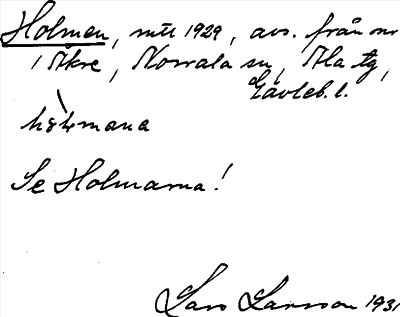 Holmen, mtl 1929, avs. från nr
1 Åkre, Norrala sn, Ala tg,
Gävleb. l.
Se Holmarna!
Lars Larsson 1931